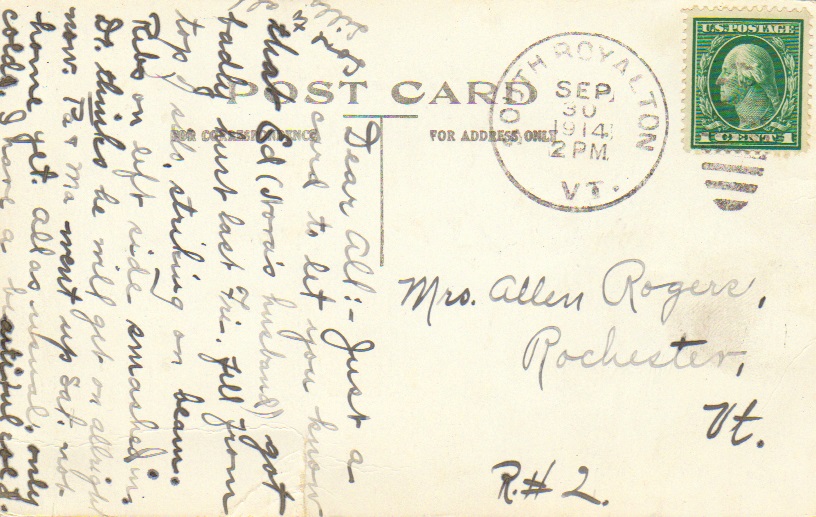 POST CARD
FOR CORRESPONDENCE
FOR ADDRESS ONLY
SOUTH ROYALTON
SEP.
30
1914
2 PM
VT.
U.S. POSTAGE
1 CENT 1
Mrs. Allen Rogers,
Rochester,
Vt.
R.# 2.
Dear Al:- Just a
card to let you know
that Ed (Nora's husband) got
badly hurt last Fri. Fell from
top of silo, striking on beam.
Ribs on left side smashed in.
Dr. thinks he will get on allright
now. Pa & Ma went up Sat. not
home yet. All as usual, only
colds. I have a beautiful cold.